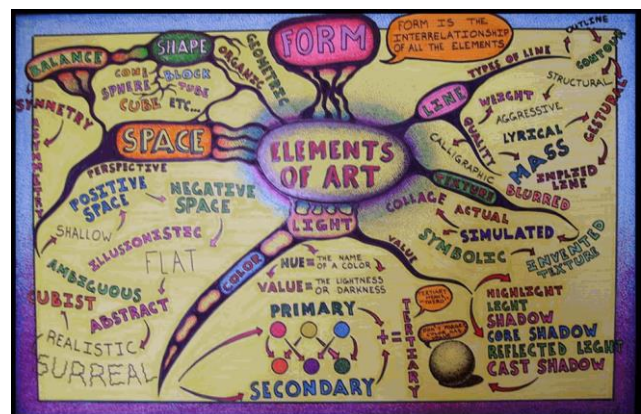 ELEMENTS
OF ART
FORM
FORM IS THE
INTERRELATIONSHIP
OF ALL THE ELEMENTS
SHAPE
ORGANIC
GEOMETRIC
CONE
SPHERE
CUBE
BLOCK
TUBE
ETC...
BALANCE
SYMMETRY
ASYMMETRY
SPACE
PERSPECTIVE
POSITIVE
SPACE
NEGATIVE
SPACE
SHALLOW
ILLUSIONISTIC
FLAT
AMBIGUOUS
CUBIST
ABSTRACT
REALISTIC
SURREAL
LINE
TYPES OF LINE
OUTLINE
CONTOUR
STRUCTURAL
GESTURAL
QUALITY
WEIGHT
AGGRESSIVE
LYRICAL
CALLIGRAPHIC
MASS
IMPLIED
LINE
BLURRED
TEXTURE
COLLAGE
ACTUAL
SIMULATED
SYMBOLIC
INVENTED
TEXTURE
LIGHT
VALUE
HIGHLIGHT
LIGHT
SHADOW
CORE SHADOW
REFLECTED LIGHT
CAST SHADOW
COLOR
HUE = THE NAME
OF A COLOR
VALUE = THE LIGHTNESS
OR DARKNESS
PRIMARY
SECONDARY
+ =
TERTIARY